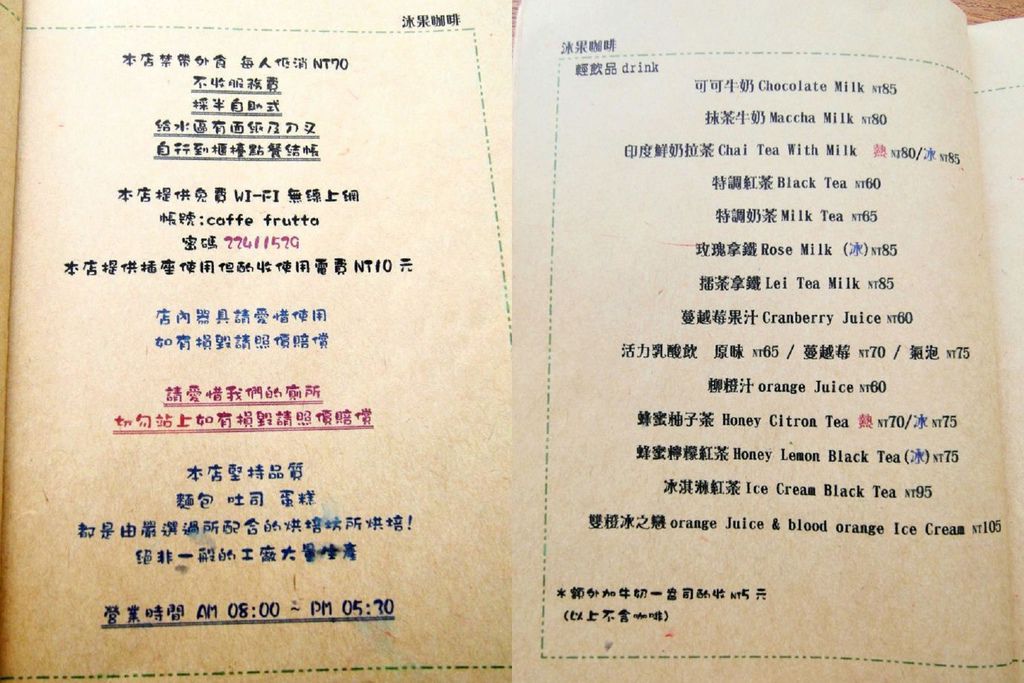 冰果咖啡
本店禁帶外食 每人低消NT70
不收服務費
採半自助式
給水區有面紙及刀叉
自行到櫃檯點餐結帳
本店提供免費 WI-FI 無線上網
帳號:caffe frutta
密碼 22411529
本店提供插座使用但酌收使用電費 NT10 元
店內器具請愛惜使用
如有損毀請照價賠償
請愛惜我們的廁所
切勿站上如有損毀請照價賠償
本店堅持品質
麵包 吐司 蛋糕
都是由嚴選過所配合的烘焙坊所烘焙!
絕非一般的工廠大量生產
營業時間 AM 08:00 ~ PM 05:30
冰果咖啡
輕飲品 drink
可可牛奶 Chocolate Milk NT85
抹茶牛奶 Maccha Milk NT80
印度鮮奶拉茶 Chai Tea With Milk 熱 NT80/冰 NT85
特調紅茶 Black Tea NT60
特調奶茶 Milk Tea NT65
玫瑰拿鐵 Rose Milk (冰) NT85
擂茶拿鐵 Lei Tea Milk NT85
蔓越莓果汁 Cranberry Juice NT60
活力乳酸飲 原味 NT65 / 蔓越莓 NT70 / 氣泡 NT75
柳橙汁 orange Juice NT60
蜂蜜柚子茶 Honey Citron Tea 熱 NT70/冰 NT75
蜂蜜檸檬紅茶 Honey Lemon Black Tea (冰) NT75
冰淇淋紅茶 Ice Cream Black Tea NT95
雙橙冰之戀 orange Juice & blood orange Ice Cream NT105
*額外加牛奶一盎司酌收 NT5 元
(以上不含咖啡)